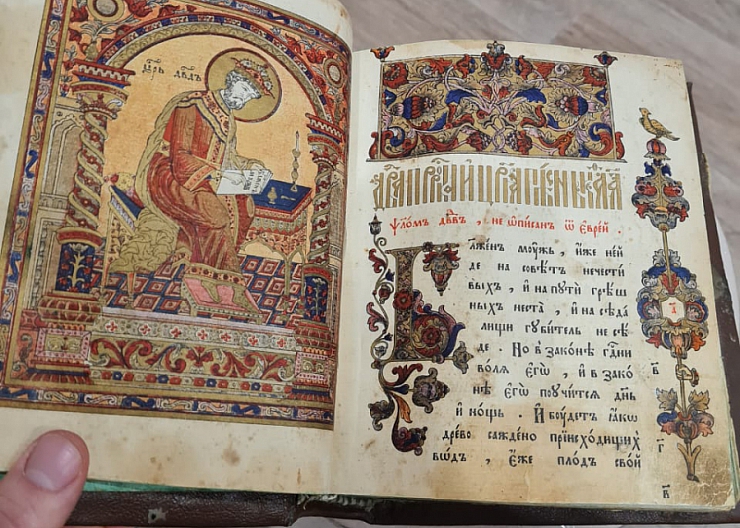 Цр҃ь Дв҃дъ
Ѱало́мъ дв҃дъ , не ѡ҆пи́санъ ѿ є҆вре́й .
Бл҃же́нъ моу́жь , и҆́же не и҆́
де на совѣ́тъ нечести́
выхъ , и҆ на пути̑ грѣ́ш
ныхъ не ста̀ , и҆ на сѣда́
лищи губи́тель не сѣ́
де . Но в зако́нѣ гдⷭ҇ни
во́лѧ є҆гѡ̀ , и҆ в зако́
нѣ є҆гѡ̀ поучи́тсѧ дн҃ь
и҆ но́щь . И҆ боу́детъ ꙗ҆́кѡ
дре́во саждено̀ при и҆схо́дищихъ
во́дъ , є҆́же пло́дъ сво́й
а҃
в҃
г҃
в҃